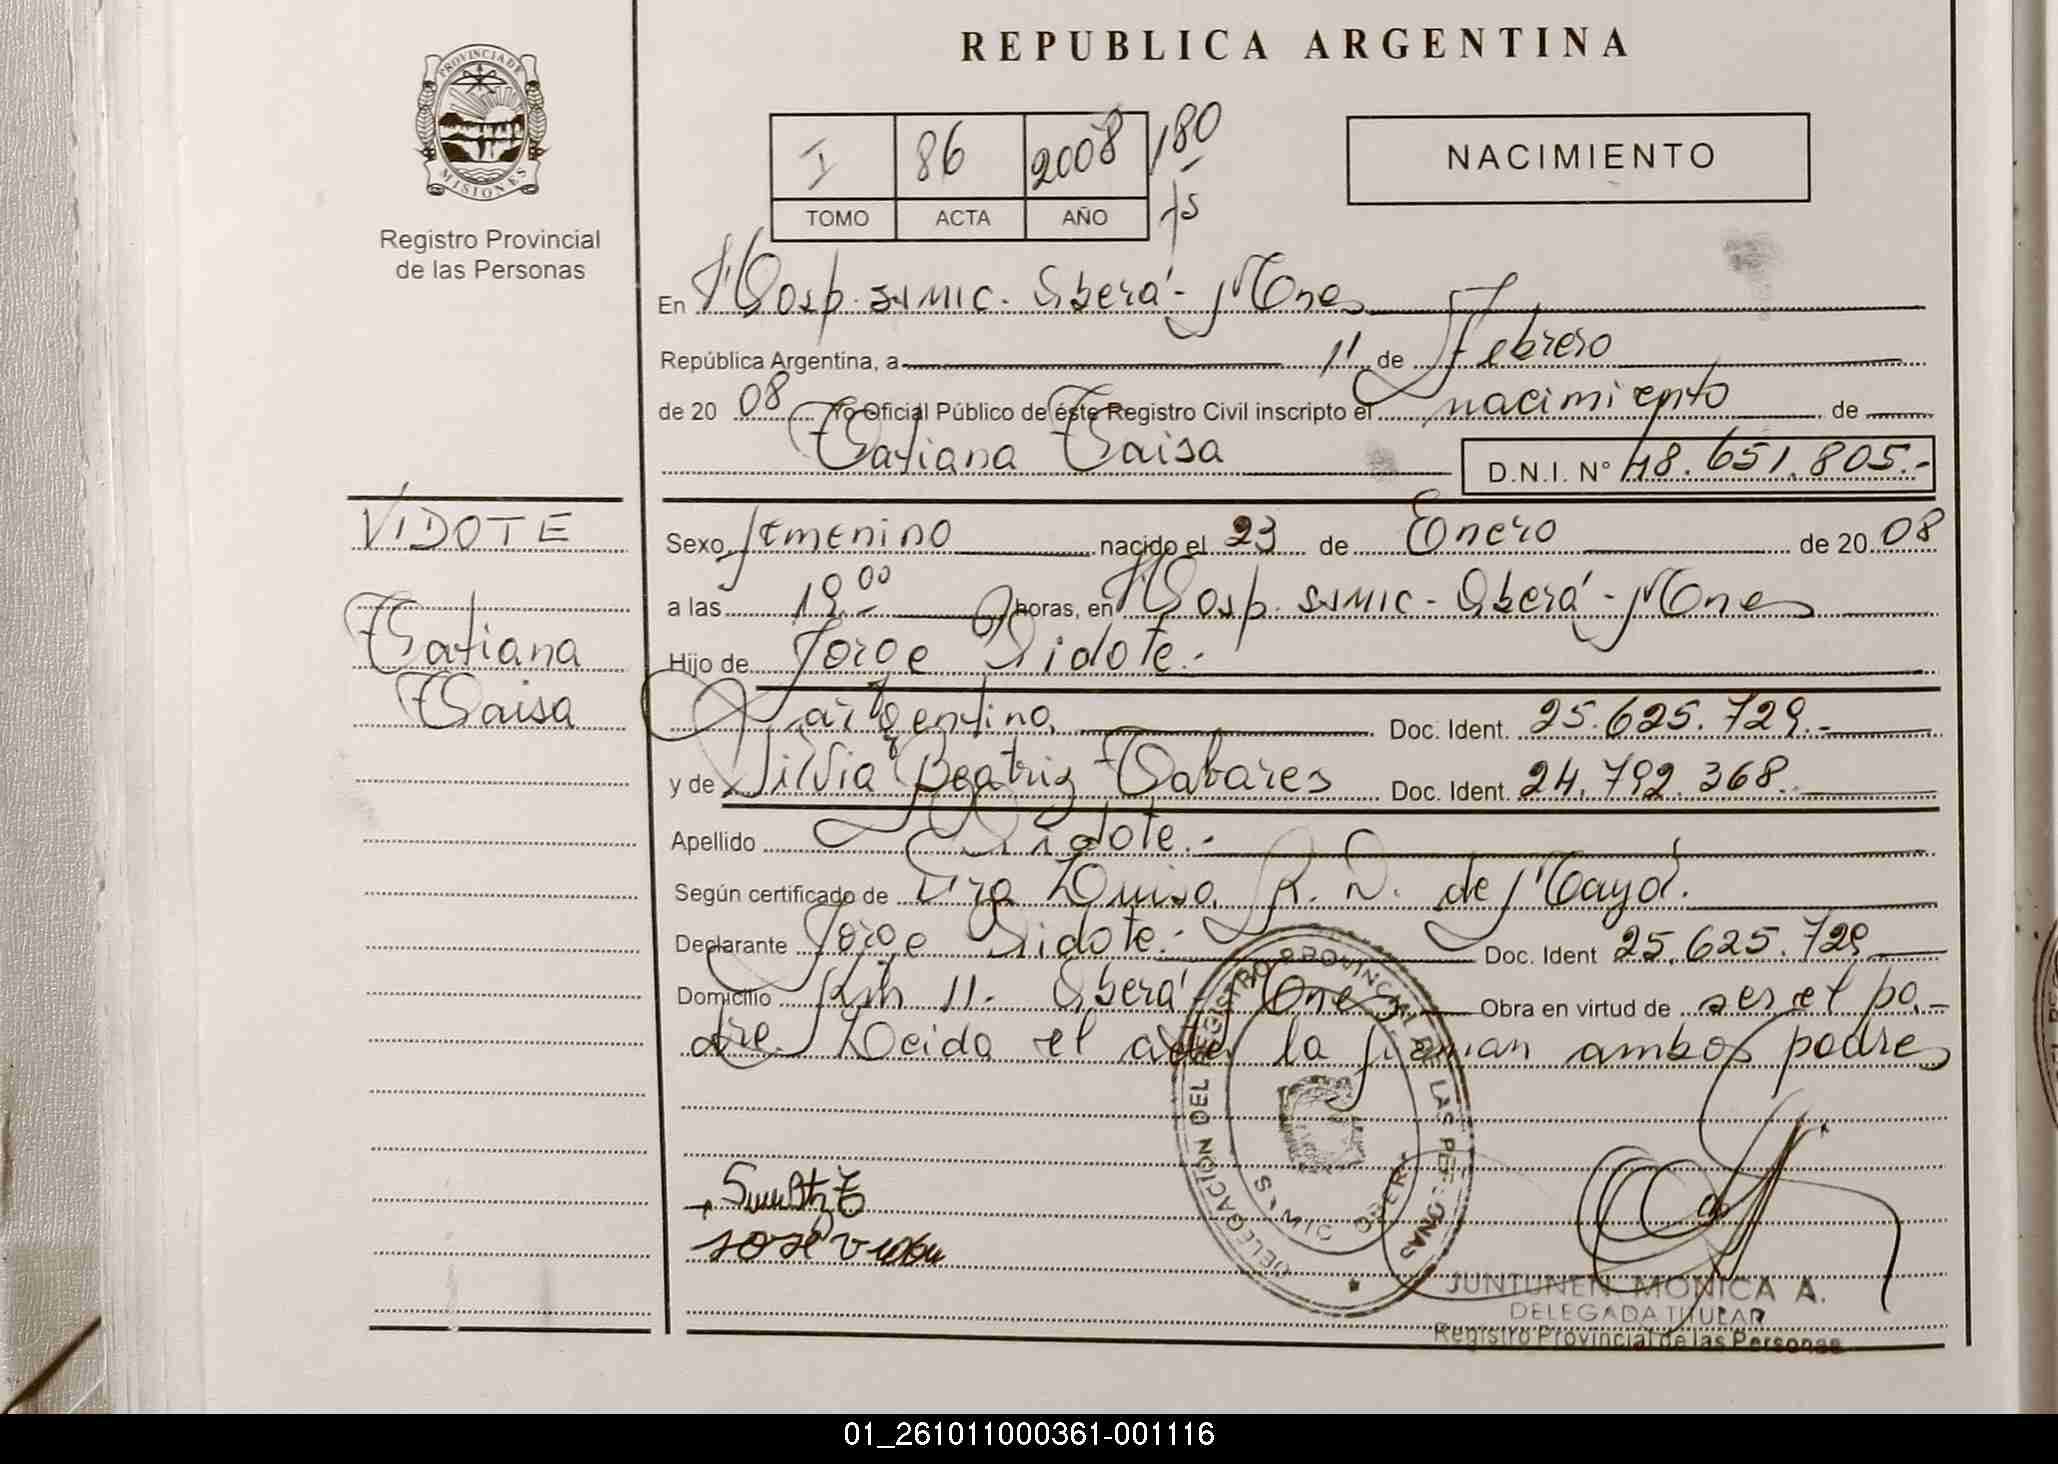 REPUBLICA ARGENTINA
PROVINCIA DE
MISIONES
Registro Provincial
de las Personas
I 86 2008 180
TOMO ACTA AÑO
NACIMIENTO
En Hosp. SAMIC. Oberá - Mnes
República Argentina, a 11 de Febrero
de 20 08 Yo Oficial Público de éste Registro Civil inscripto el nacimiento de
Tatiana Taisa D.N.I. N° 48.651.805.-
VIDOTE
Tatiana
Taisa
Sexo femenino nacido el 23 de Enero de 20 08
a las 19.00 horas, en Hosp. SAMIC - Oberá - Mnes
Hijo de Jorge Vidote.-
argentino Doc. Ident. 25.625.729.-
y de Silvia Beatriz Tabares Doc. Ident. 24.792.368.
Apellido Vidote.-
Según certificado de Dra Luisa R. D. de Mayol.
Declarante Jorge Vidote.- Doc. Ident 25.625.729
Domicilio Km 11. Oberá - Mnes Obra en virtud de ser el pa-
dre. Leida el acta la firman ambos padres
DELEGACIÓN DEL REGISTRO PROVINCIAL DE LAS PERSONAS
SAMIC OBERA
JUNTUNEN MONICA A.
DELEGADA TITULAR
Registro Provincial de las Personas
01_261011000361-001116